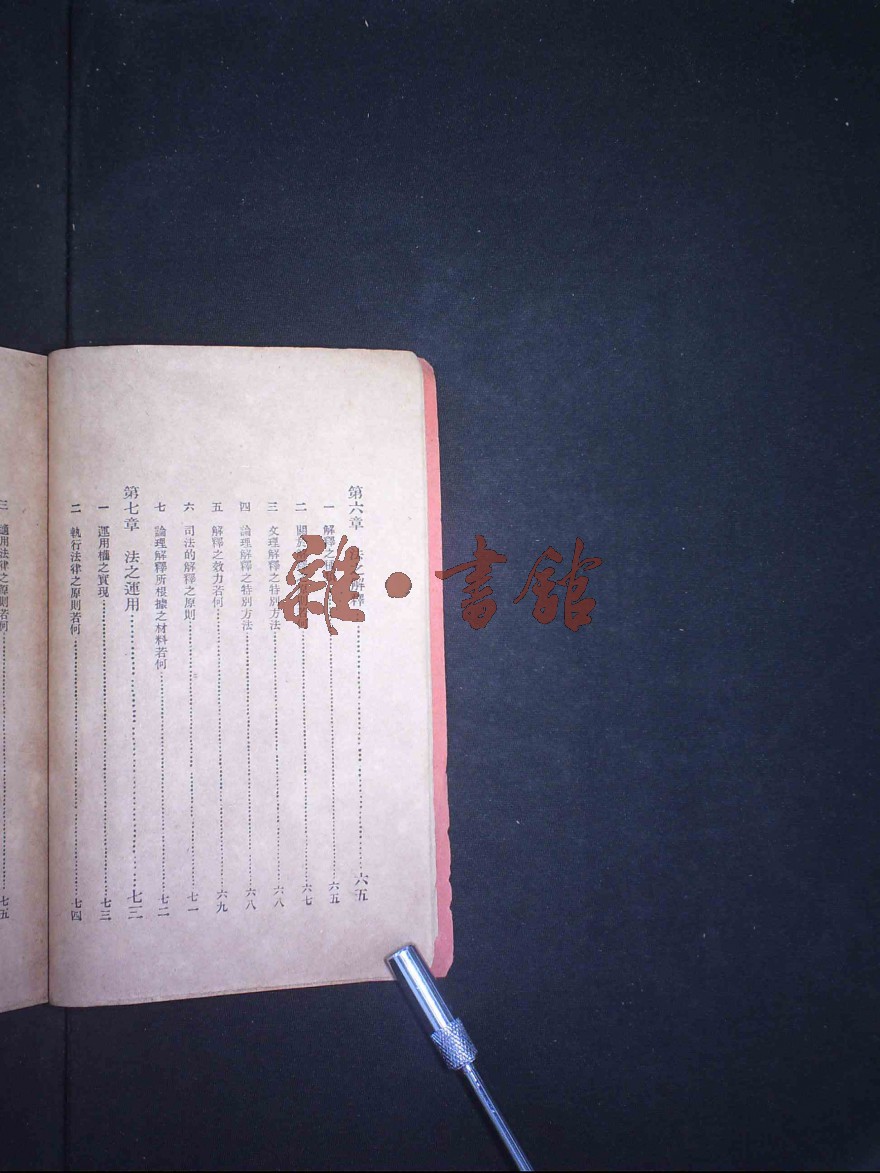 第六章 法之解釋…六五
一 解釋之…六五
二 關於…六七
三 文理解釋之特別方法…六八
四 論理解釋之特別方法…六八
五 解釋之效力若何…六九
六 司法的解釋之原則…七一
七 論理解釋所根據之材料若何…七二
第七章 法之運用…七三
一 運用權之實現…七三
二 執行法律之原則若何…七四
三 適用法律之原則若何…七五
雜·書館